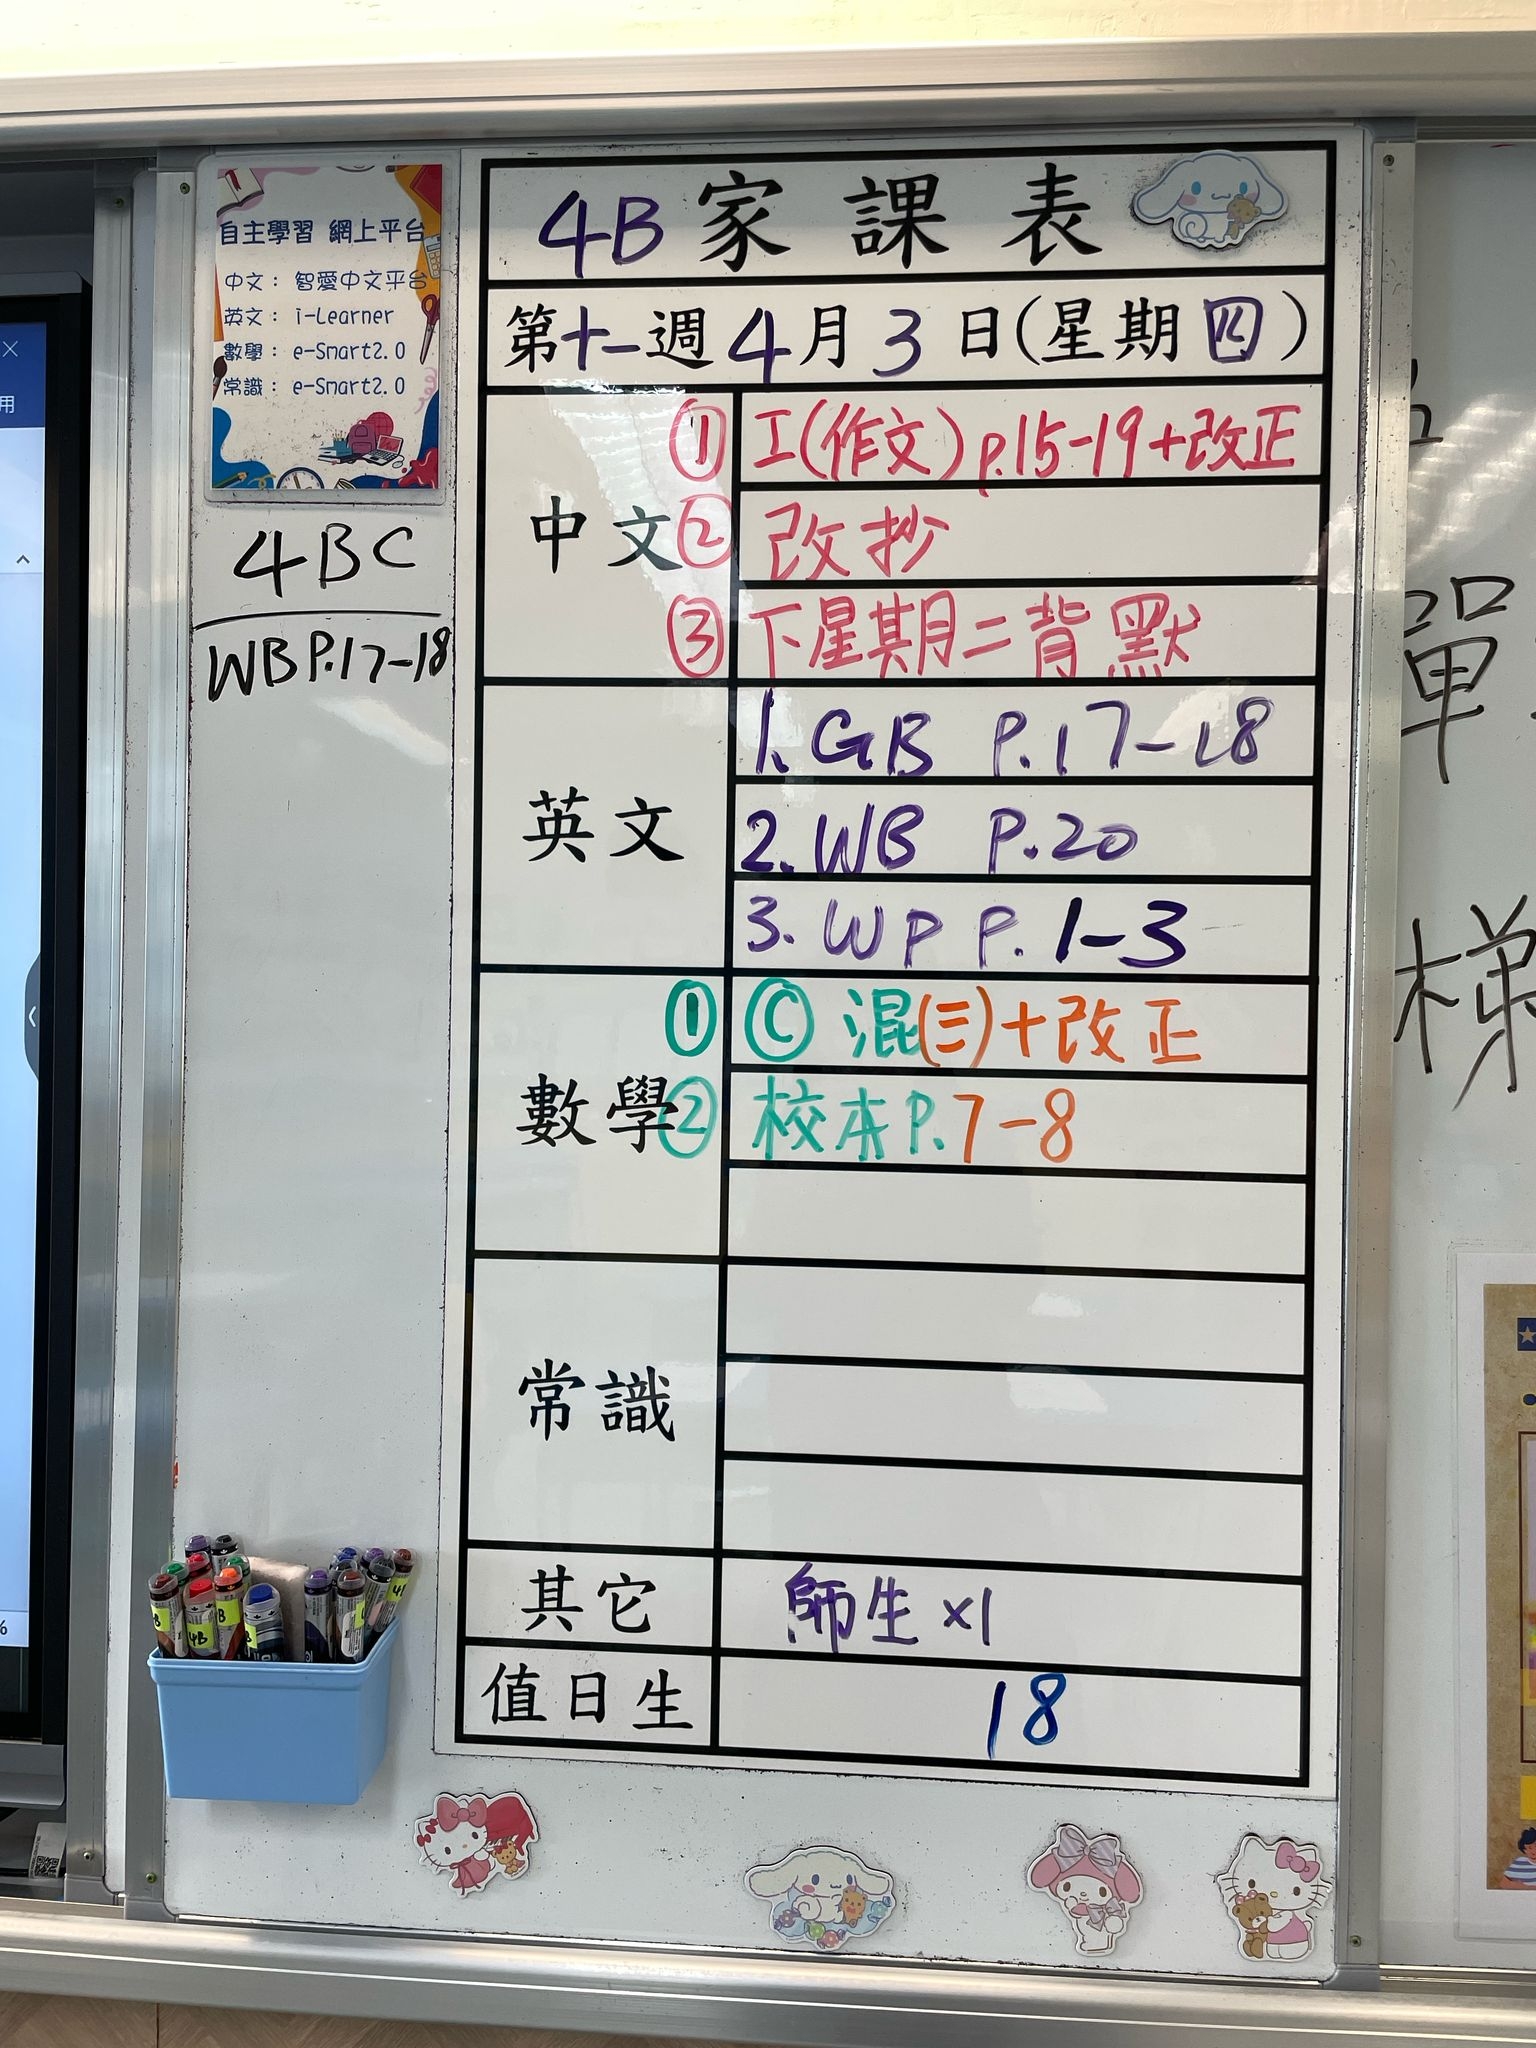 自主學習 網上平台
中文： 智愛中文平台
英文： i-Learner
數學： e-Smart2.0
常識： e-Smart2.0
4BC
WB P.17-18
4B 家課表
第十一週 4月3日(星期四)
中文
① 工(作文) p.15-19+改正
② 改抄
③ 下星期二背默
英文
1. GB P.17-18
2. WB P.20
3. WP P.1-3
數學
① Ⓒ 混(三)+改正
② 校本P.7-8
常識
其它
師生 x1
值日生
18
單
梯
用
4B